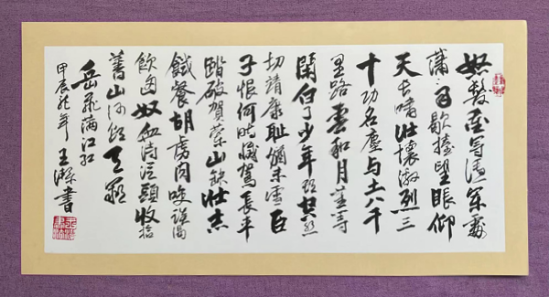 怒髮衝冠憑闌處
瀟雨歇擡望眼仰
天長嘯壯懷激烈三
十功名塵与土八千
里路雲和月莫等
閑白了少年頭空悲
切靖康耻猶未雪臣
子恨何時滅駕長車
踏破賀蘭山缺壯志
飢餐胡虜肉笑談渴
飲匈奴血待從頭收拾
舊山河朝天闕
岳飛滿江红
甲辰龙年 王書